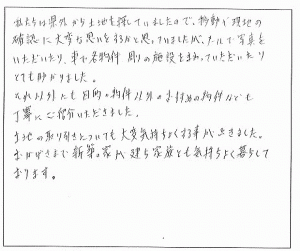 私たちは県外から土地を探していましたので、移動や現地の
確認に大変な思いをするかと思っていましたが、メールで写真を
いただいたり、車で名物件 周りの施設をまわっていただいたり
とても助かりました。
それ以外にも目的の物件以外のお付近の物件なども
丁寧にご紹介いただきました。
土地の取り引きについても大変気持ちよくする事ができました。
おかげさまで新築の家が建ち家族とも気持ちよく暮らして
おります。